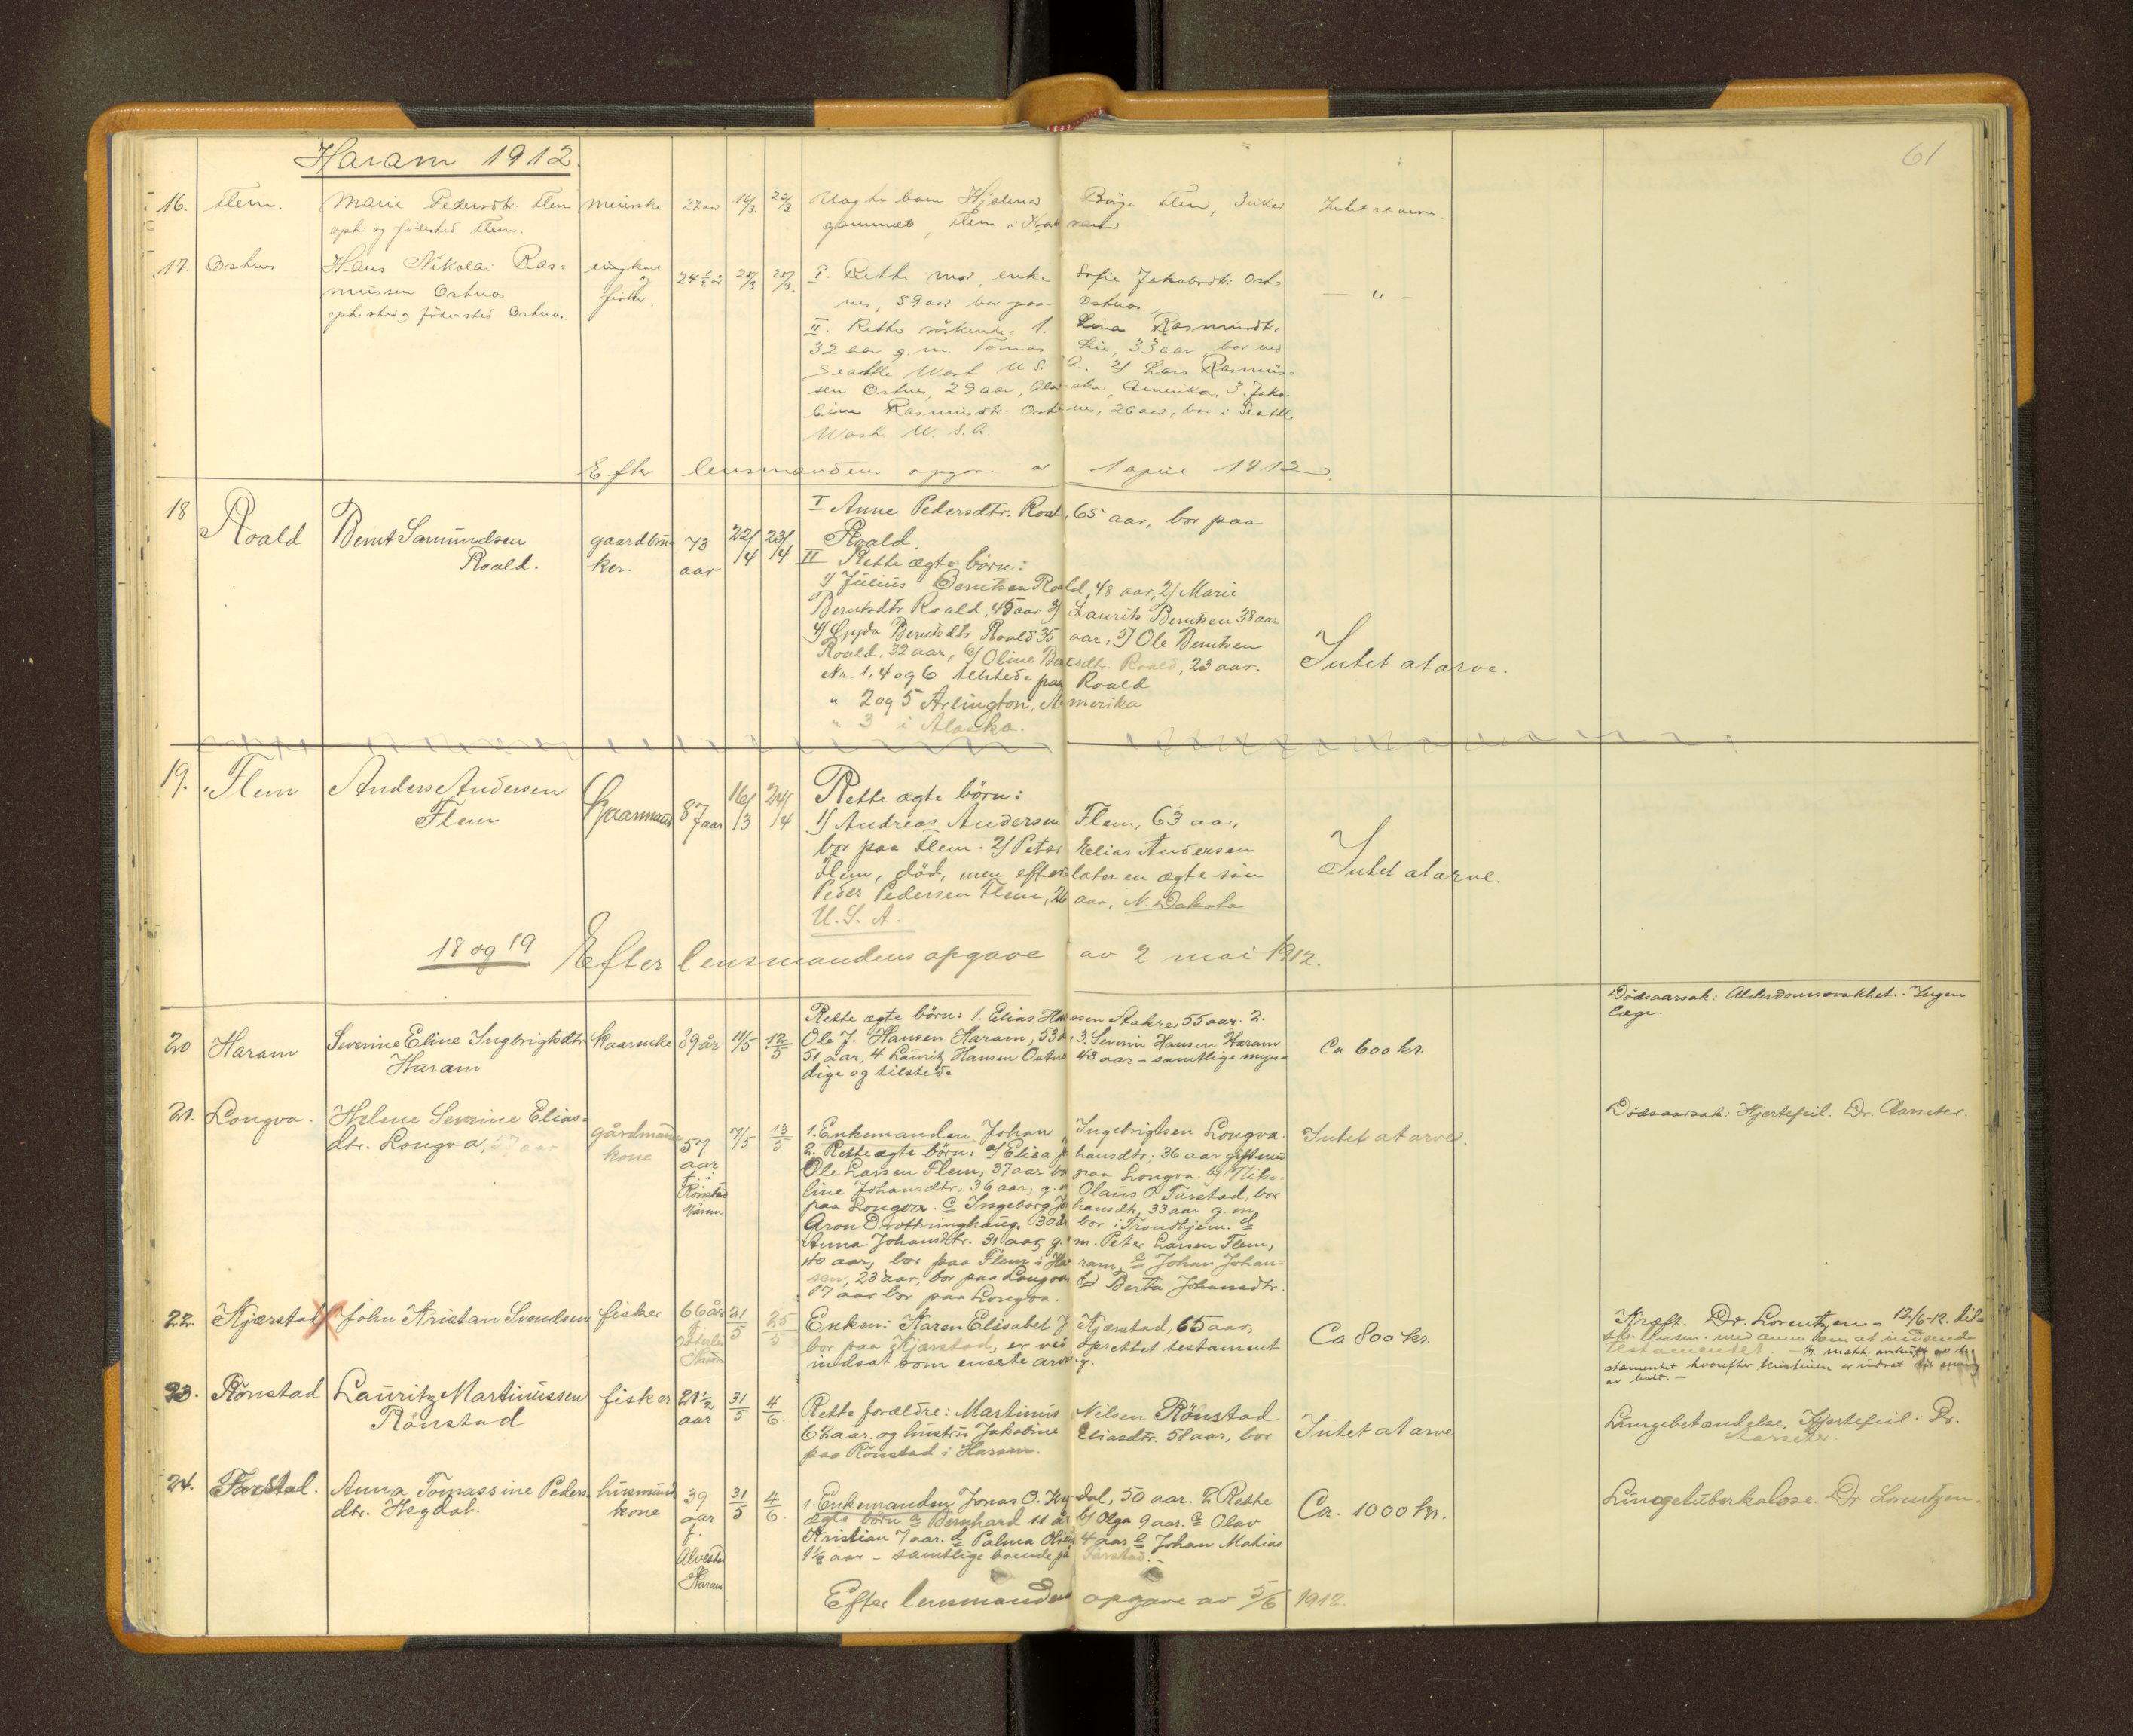 Haram 1912.
61
16. Flem. Marie Pedersdtr. Flem 27 aar 16/3 22/3 Uægte barn Hjalmar Børge Flem, 3 uker Intet at arve.
oph. og fødested Flem. gammel, Flem i Haram
17. Østnes Hans Nikolai Ras- ungkar 24 1/2 år 20/3 I. Rette mor, enke Sofie Jakobsdtr. Øst-
mussen Østnes og fisker. nes, 59 aar bor paa Østnes. — " —
oph. sted og fødersted Østnes. II. Rette søskende: 1. Lina Rasmusdtr.
32 aar g. m. Tomas Lie, 33 aar bor ved
Seattle Wash U. S. A. 2) Lars Rasmus-
sen Østnes, 29 aar, Alaska, Amerika. 3. Jako-
bine Rasmusdtr. Østnes, 26 aar, bor i Seattle
Wash. U. S. A.
Efter lensmandens opgave av 1 april 1912.
18 Roald Bernt Samundsen gaardbru- 73 22/4 23/4 I Anne Pedersdtr. Roald, 65 aar, bor paa
Roald. ker. aar Roald.
II Rette ægte børn:
1) Julius Berntsen Roald, 48 aar, 2) Marie
Berntsdtr Roald, 45 aar 3) Laurits Berntsen 38 aar
4) Gyda Berntsdtr Roald 35 aar, 5) Ole Berntsen
Roald, 32 aar, 6) Oline Berntsdtr. Roald, 23 aar. Intet at arve.
Nr. 1, 4 og 6 tilstede paa Roald
" 2 og 5 Arlington, Amerika
" 3 i Alaska.
19. Flem Anders Andersen Kaarmand 87 aar 16/3 24/4 Rette ægte børn:
Flem 1) Andreas Andersen Flem, 63 aar,
bor paa Flem. 2) Peter Elias Andersen
Flem, død, men efterlater en ægte søn Intet at arve.
Peder Pedersen Flem, 26 aar, N. Dakota
U. S. A.
18 og 19 Efter lensmandens opgave av 2 mai 1912.
20 Haram Severine Eline Ingbrigtsdtr. Kaarenke 89 år 11/5 12/5 Rette ægte børn: 1. Elias Hansen Aakre 55 aar. 2. Dødsaarsak: Alderdomssvakhet. Ingen
Haram Ole J. Hansen Haram, 53 aar, 3. Severin Hansen Haram læge.
51 aar, 4 Lauritz Hansen Østnes 48 aar – samtlige myn- Ca 600 kr.
dige og tilstede
21. Longva. Helene Severine Elias- gårdmands 57 7/5 13/5 1. Enkemanden Johan Ingebrigtsen Longva. Intet at arve. Dødsaarsak: Hjertefeil. Dr. Aarseter.
dtr. Longva, 57 aar kone aar 2. Rette ægte børn: a) Elisa Johansdtr; 36 aar gift med
f. i Ole Larsen Flem, 37 aar bor paa Longva. b) Niko-
Rønstad line Johansdtr, 36 aar, g. m. Olaus O. Farstad, bor
Haram paa Longva. c Ingeborg Johansdtr, 33 aar g. m.
Aron Drottninghaug, 30 år bor i Trondhjem. d
Anna Johansdtr. 31 aar, g. m. Peter Larsen Flem,
40 aar, bor paa Flem i Haram, e Johan Johan-
sen, 23 aar, bor paa Longva f) Berta Johansdtr.
17 aar bor paa Longva.
22. Kjærstad John Kristan Svendsen fisker 66 år 21/5 25/5 Enken: Karen Elisabet J. Kjærstad, 65 aar, Ca 800 kr. Kræft. Dr. Lorentzen. 12/6-12. tilskr. lensm. med anm. om at indsende
Haram bor paa Kjærstad, er ved oprettet testament testamentet. –
indsat som eneste arving. testamentet hvorefter kvistinnen er indsat
av boet. –
23. Rønstad Lauritz Martinussen fisker 21 1/2 31/5 4/6. Rette forældre: Martinus Nilsen Rønstad Intet at arve Lungebetændelse, Hjertefeil. Dr.
Rønstad aar 62 aar. og hustru Jakobine Eliasdtr. 58 aar, bor Aarseter.
paa Rønstad i Haram.
24. Farstad. Anna Tomassine Peders- husmands 39 31/5 4/6. 1. Enkemanden Jonas O. Hegdal, 50 aar. 2. Rette Ca. 1000 kr. Lungetuberkulose. Dr Lorentzen.
dtr. Hegdal. kone aar ægte børn a Bernhard 11 år b) Olga 9 aar. c Olav
f. Kristian 7 aar. d Palma Olivia 4 aar e Johan Mathias
Alvestad 1 1/2 aar – samtlige boende på Farstad. –
Haram
Efter lensmandens opgave av 5/6 1912.